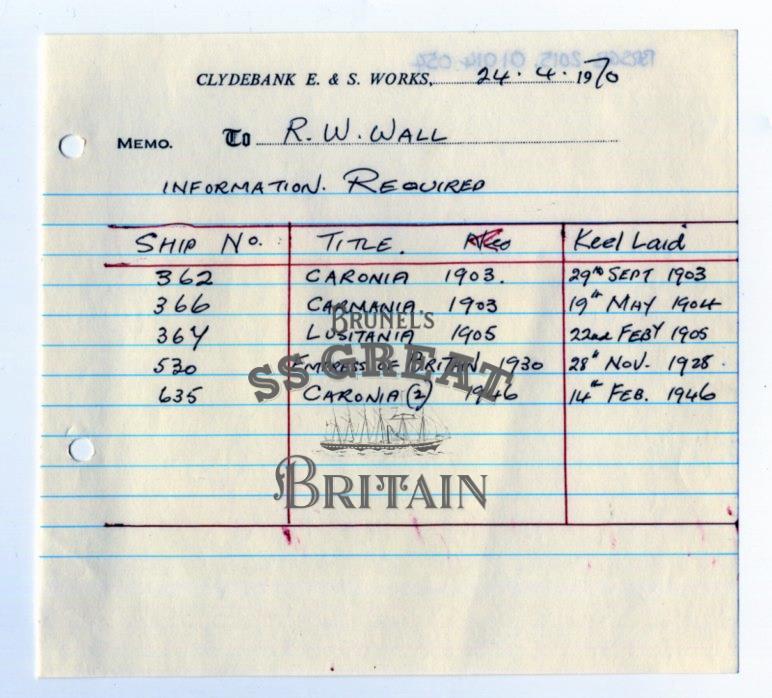 CLYDEBANK E. & S. WORKS, 24.4.1970
MEMO. To R. W. WALL
INFORMATION. REQUIRED
SHIP No. TITLE. Keel Laid
362 CARONIA 1903. 29th SEPT 1903
366 CARMANIA 1903 19th MAY 1904
367 LUSITANIA 1905 22nd FEBY 1905
530 EMPRESS OF BRITAIN 1930 28th NOV. 1928.
635 CARONIA (2) 1946 14th FEB. 1946
BRUNEL'S
SS GREAT
BRITAIN